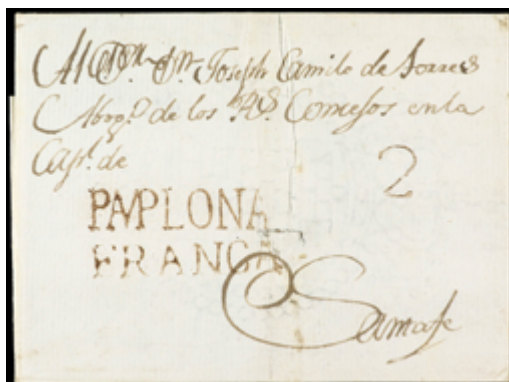 Al Sr. Dn. Joseph Camilo de Torres
Abogo. de los Rs. Consejos en la
Capl. de
2
PAPLONA
FRANCA
Santafe